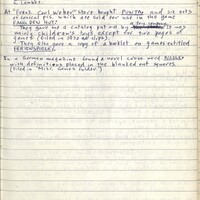 At "Franz Carl Weber" store bought PUNTA and six sets
of conical pcs. which are sold for use in the game
FANG DEN HUT!
They gave me a catalog put out by It was
mainly children's toys except for two pages of
games (filed in 5970 ad slips).
They also gave a copy of a booklet on games entitled
In a German magazine found a novel cross word
with definitions placed in the blanked out squares.
(filed in "Misc Games folder")